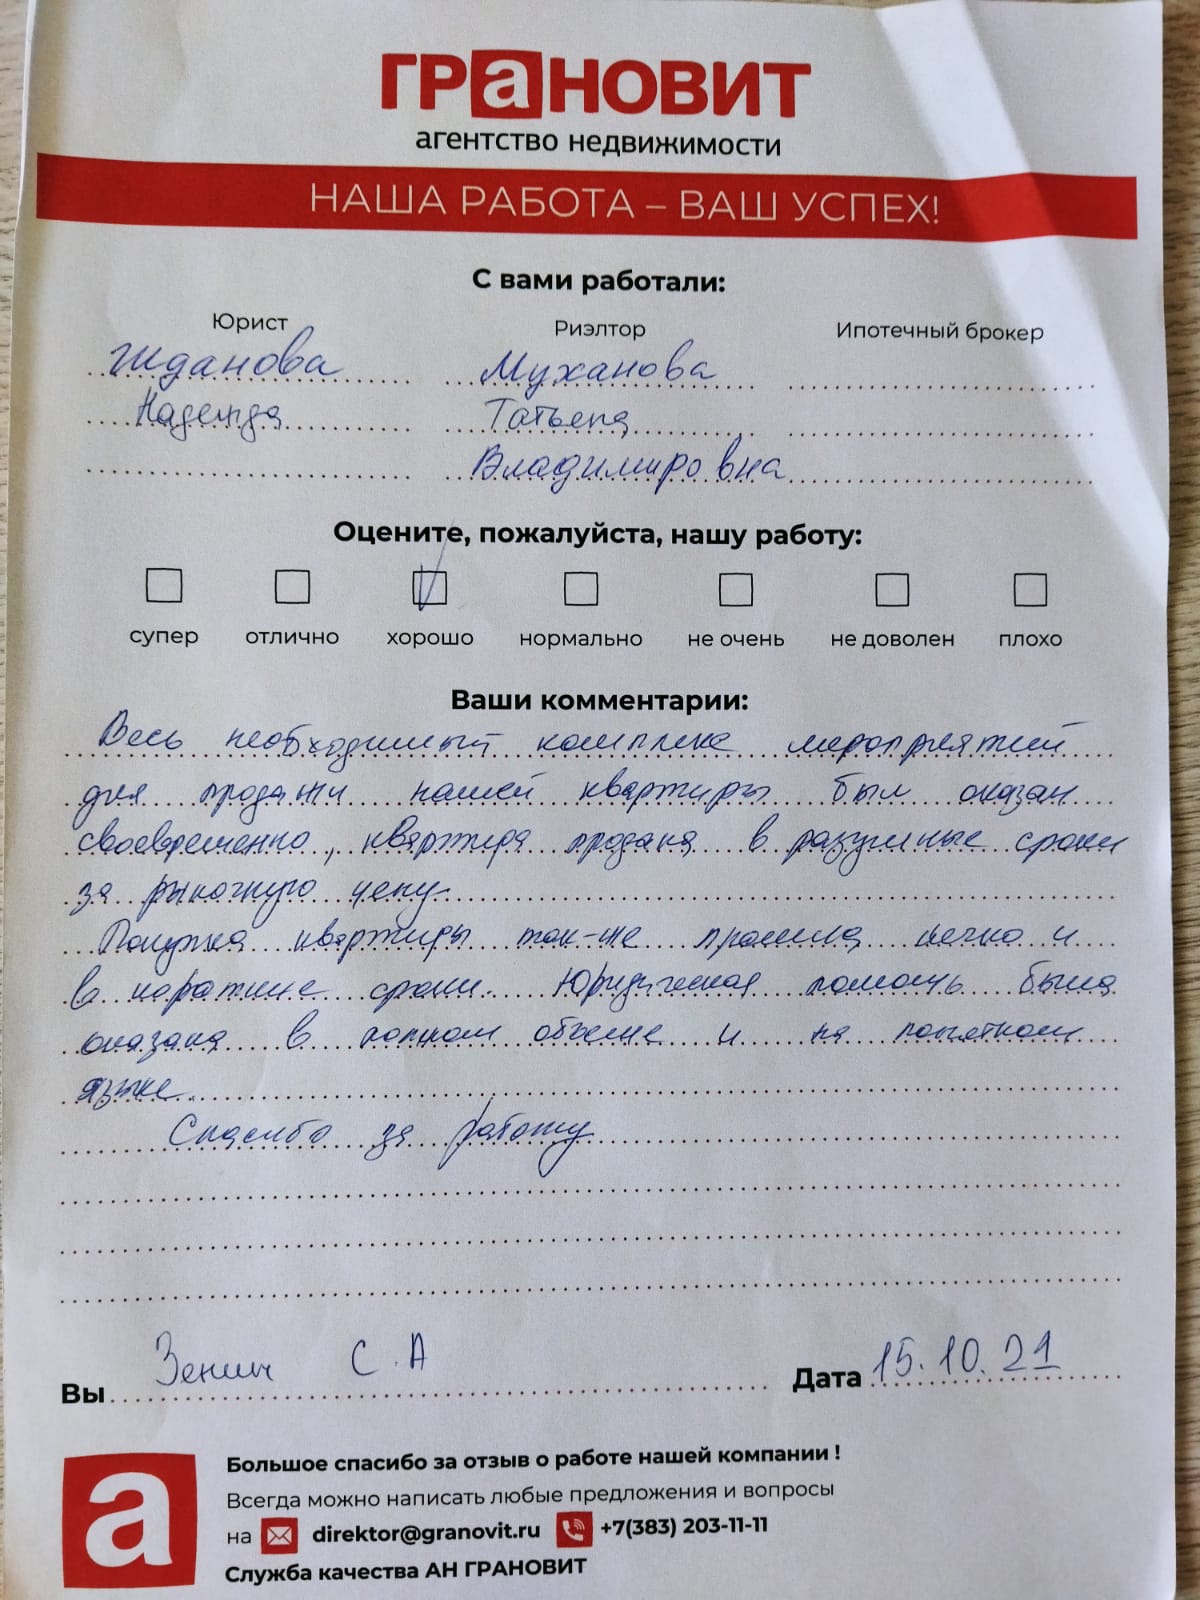 ГРаНОВИТ
агентство недвижимости
НАША РАБОТА – ВАШ УСПЕХ!
С вами работали:
Юрист Риэлтор Ипотечный брокер
Жданова Муханова
Надежда Татьяна
Владимировна
Оцените, пожалуйста, нашу работу:
супер отлично хорошо нормально не очень не доволен плохо
Ваши комментарии:
Весь необходимый комплекс мероприятий
для продажи нашей квартиры был оказан
своевременно, квартира продана в разумные сроки
за рыночную цену.
Покупка квартиры так-же прошла легко и
в короткие сроки. Юридическая помощь была
оказана в полном объеме и на понятном
языке.
Спасибо за работу
Вы Зенин С.А Дата 15.10.21
а
Большое спасибо за отзыв о работе нашей компании !
Всегда можно написать любые предложения и вопросы
на direktor@granovit.ru +7(383) 203-11-11
Служба качества АН ГРАНОВИТ